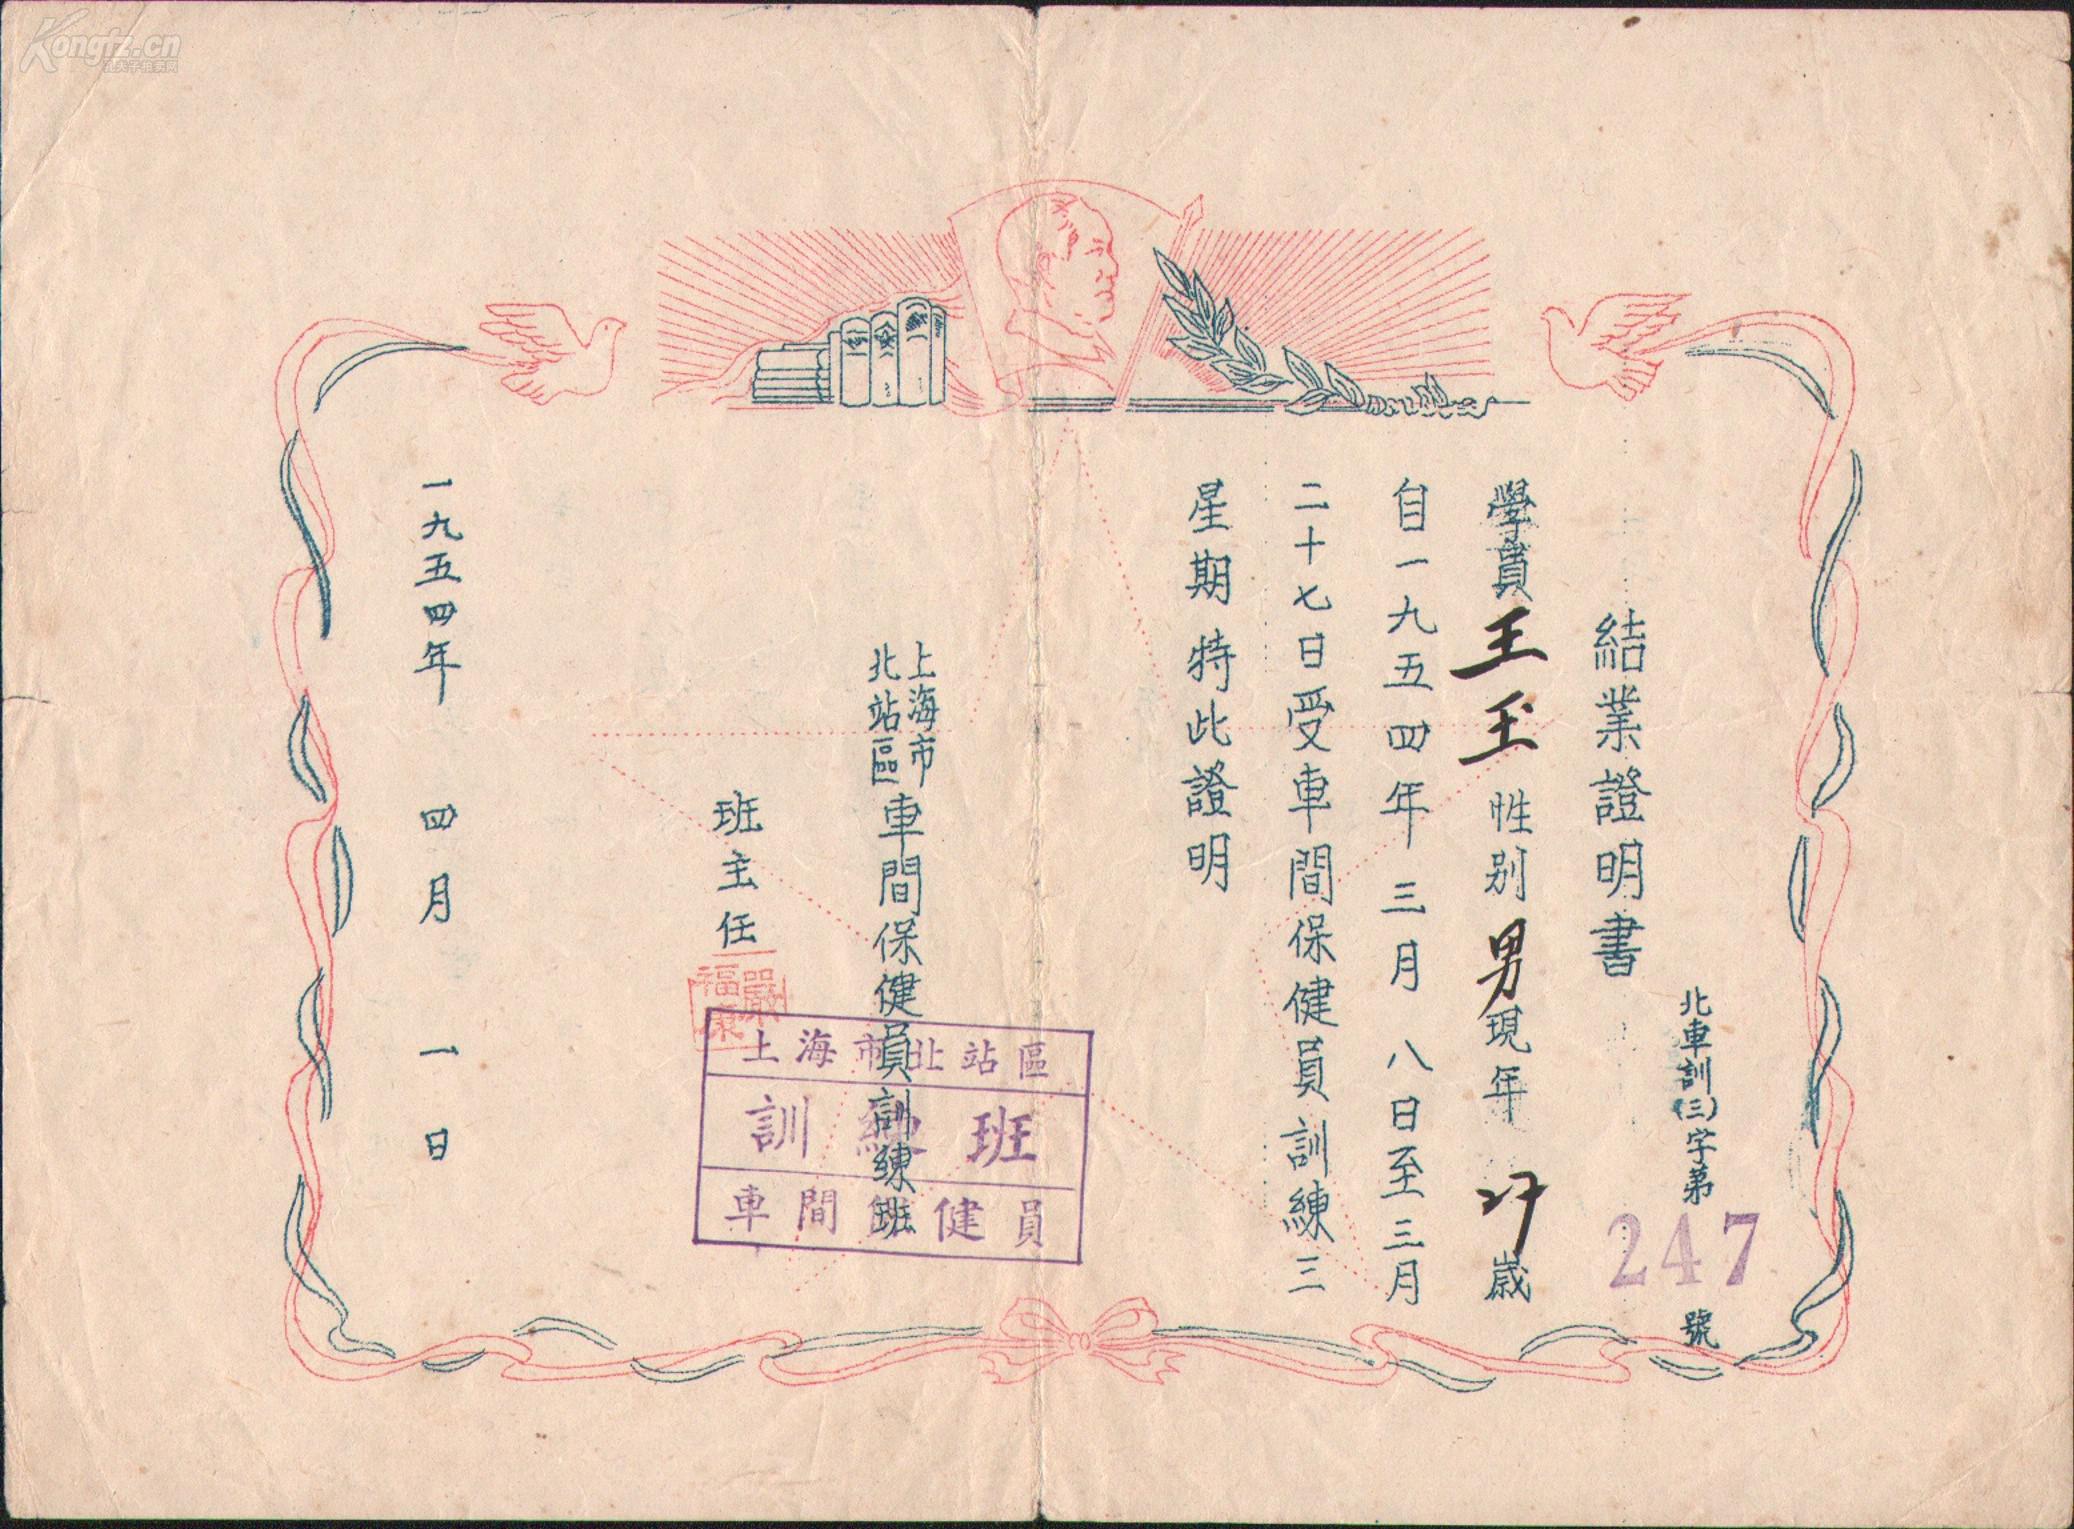 結業證明書
北車訓(三)字第247號
學員王玉性別男現年27歲
自一九五四年三月八日至三月
二十七日受車間保健員訓練三
星期特此證明
上海市
北站區
車間保健員訓練班
班主任
嚴福康
上海市北站區
訓練班
車間保健員
一九五四年四月一日
Kongfz.cn
孔夫子拍卖网